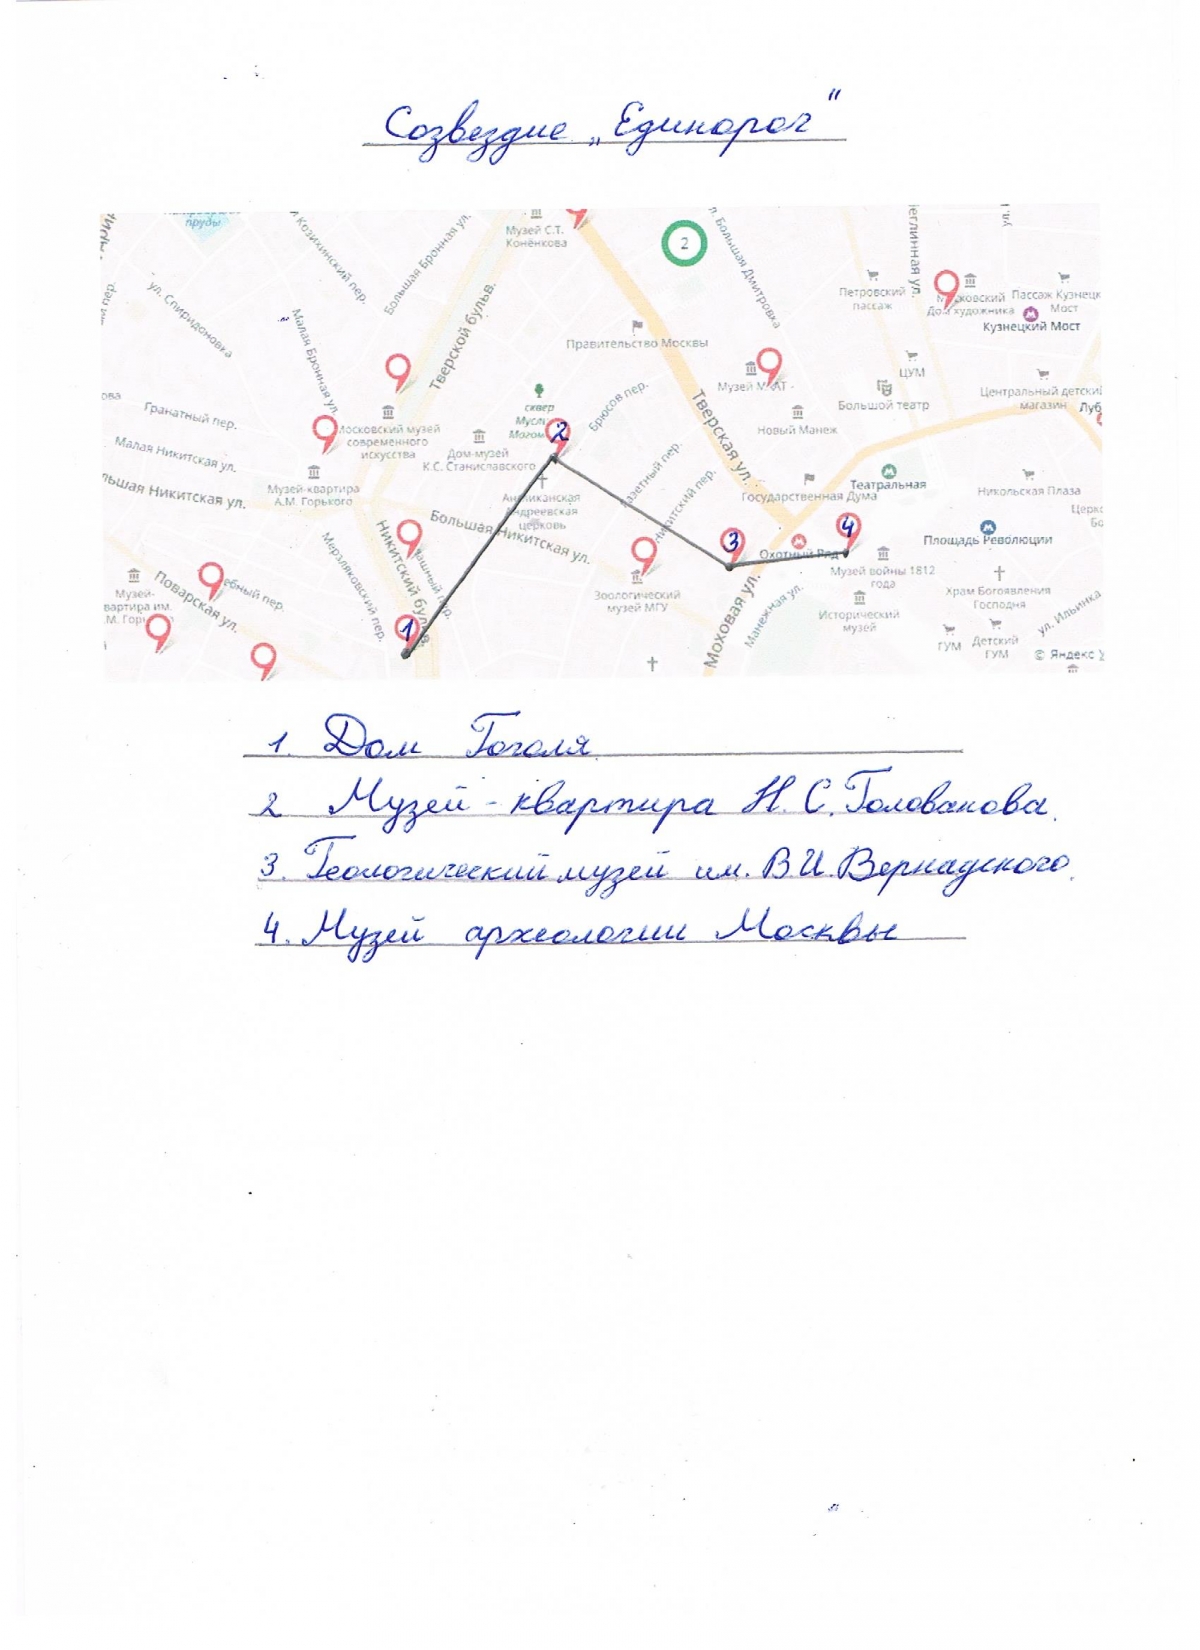 Созвездие „Единорог“
пруды
Музей С.Т.
Конёнкова
2
Козихинский пер.
Большая Бронная ул.
Большая Дмитровка
ул. Спиридоновка
Малая Бронная ул.
Тверской бульв.
Петровский
пассаж
Дом художника
Пассаж Кузнецк
Мост
Кузнецкий Мост
Правительство Москвы
ЦУМ
Большой театр
Центральный детски
магазин
Гранатный пер.
Малая Никитская ул.
льшая Никитская ул.
Московский музей
современного
искусства
сквер
Брюсов пер.
Тверская ул.
Новый Манеж
Дом-музей
К.С. Станиславского
2
Музей-квартира
А.М. Горького
Англиканская
Андреевская
церковь
Большая Никитская ул.
Государственная Дума
Театральная
Никольская Плаза
Площадь Революции
3
4
Охотный Ряд
Музей войны 1812
года
Храм Богоявления
Господня
Мерзляковский пер.
Никитский бульв.
Зоологический
музей МГУ
Моховая ул.
Манежная ул.
Исторический
музей
ГУМ
Детский
ГУМ
ул. Ильинка
© Яндекс
Музей-
вартира им.
Поварская ул.
1
1. Дом Гоголя
2 Музей-квартира Н.С.Голованова.
3. Геологический музей им. В.И.Вернадского.
4. Музей археологии Москвы